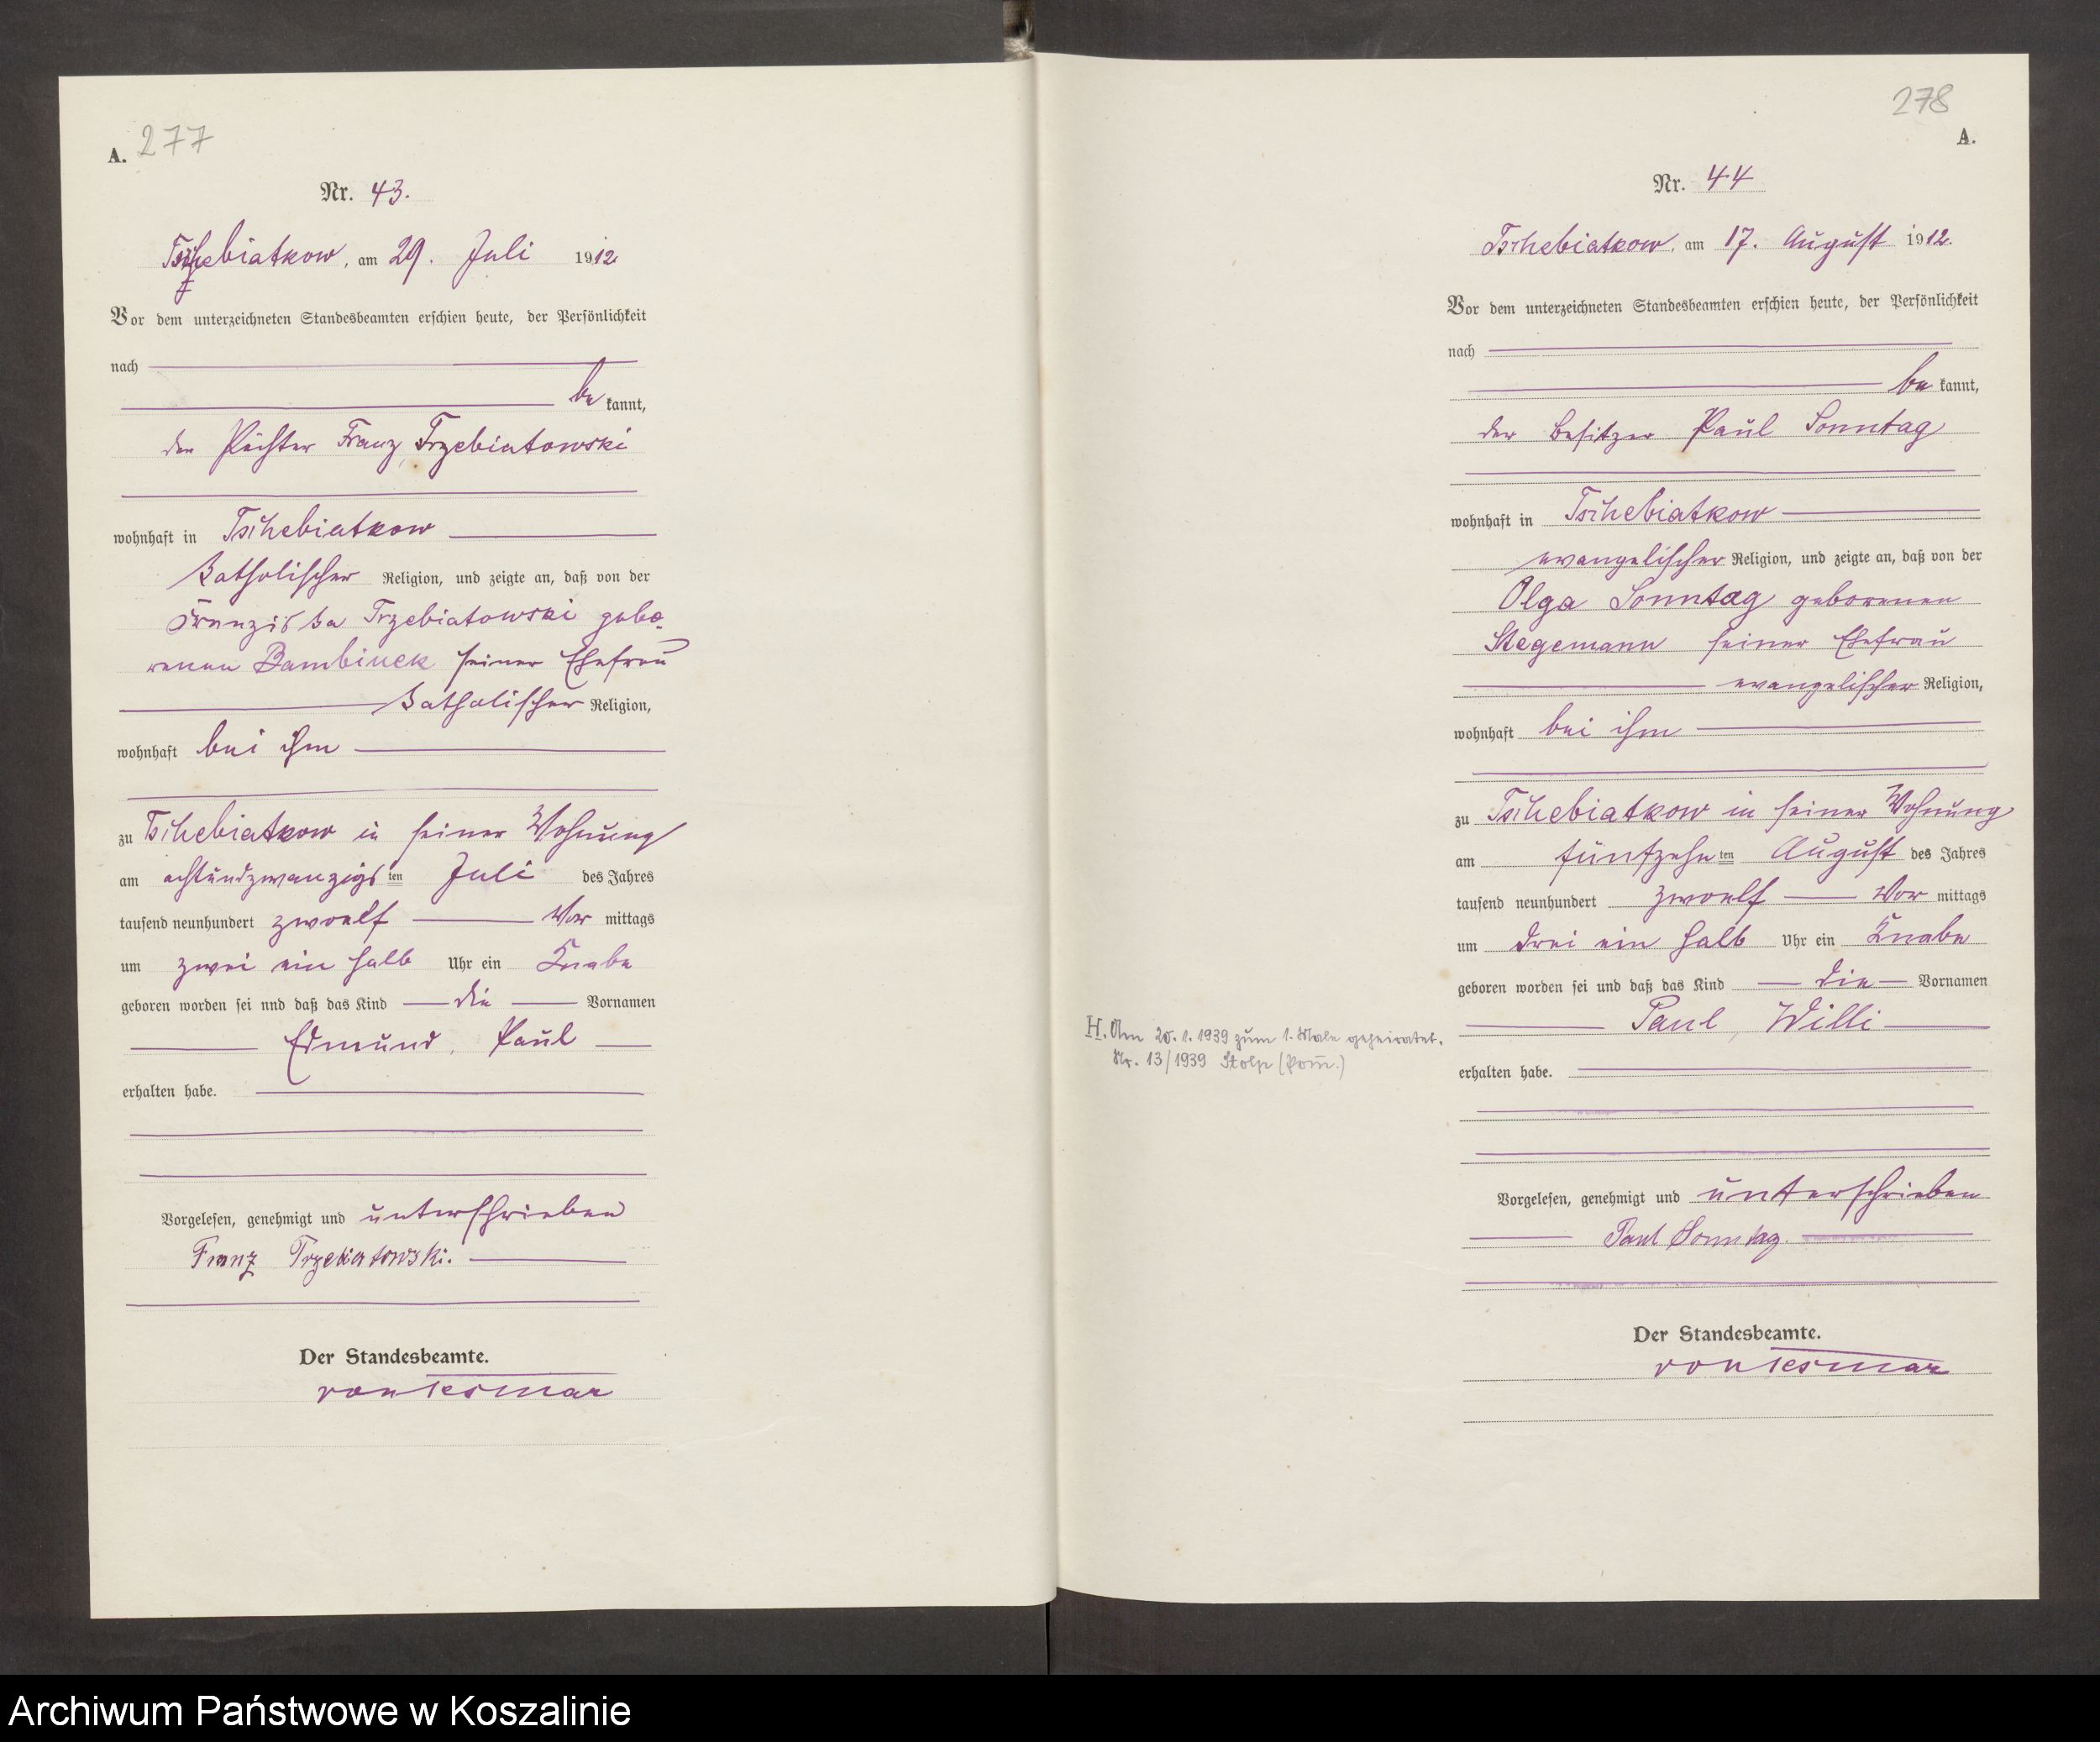 277
A.
Nr. 43.
Tschebiatkow, am 29. Juli 1912
Vor dem unterzeichneten Standesbeamten erschien heute, der Persönlichkeit
nach
be kannt,
der Pächter Franz Trzebiatowski
wohnhaft in Tschebiatkow
katholischer Religion, und zeigte an, daß von der
Franziska Trzebiatowski gebo-
renen Bambinek seiner Ehefrau
katholischer Religion,
wohnhaft bei ihm
zu Tschebiatkow in seiner Wohnung
am achtundzwanzigsten Juli des Jahres
tausend neunhundert zwoelf Vor mittags
um zwei ein halb Uhr ein Knabe
geboren worden sei nnd daß das Kind die Vornamen
Edmund, Paul
erhalten habe.
Vorgelesen, genehmigt und unterschrieben
Franz Trzebiatowski.
Der Standesbeamte.
von Tesmar
278
A.
Nr. 44
Tschebiatkow, am 17. August 1912.
Vor dem unterzeichneten Standesbeamten erschien heute, der Persönlichkeit
nach
be kannt,
der Besitzer Paul Sonntag
wohnhaft in Tschebiatkow
evangelischer Religion, und zeigte an, daß von der
Olga Sonntag geborenen
Stegemann seiner Ehefrau
evangelischer Religion,
wohnhaft bei ihm
zu Tschebiatkow in seiner Wohnung
am fünfzehnten August des Jahres
tausend neunhundert zwoelf Vor mittags
um drei ein halb Uhr ein Knabe
geboren worden sei und daß das Kind die Vornamen
Paul, Willi
erhalten habe.
H. Am 20.1.1939 zum 1. Male geheiratet.
Nr. 13/1939 Stolp (Pom.)
Vorgelesen, genehmigt und unterschrieben
Paul Sonntag
Der Standesbeamte.
von Tesmar
Archiwum Państwowe w Koszalinie